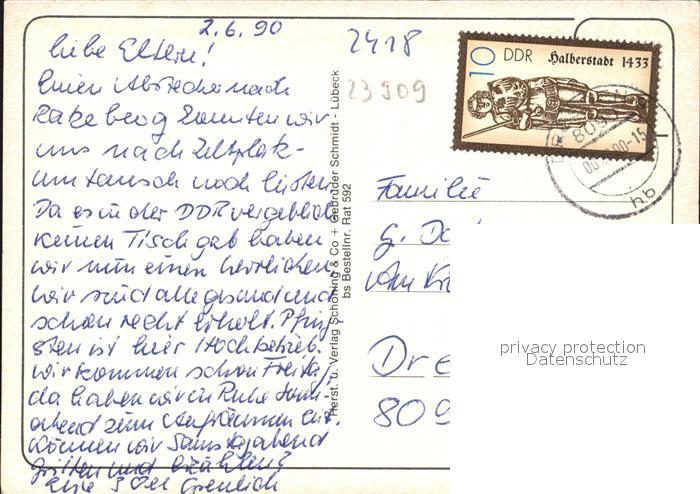 2.6.90
liebe Eltern!
Einen Abstecher nach
Ratzeburg konnten wir
uns nach Zeltplatz-
umtausch noch leisten
Da es in der DDR vergeblich
keinen Tisch gab haben
wir nun einen herrlichen
Wir sind alle gesund und
schon recht erholt. Pfing
sten ist hier Hochbetrieb.
Wir kommen schon Freitag
da haben wir in Ruhe Sonn-
abend zum Aufräumen Zeit.
Können wir Samstagabend
grillen und erzählen?
Eure 3
2418
23909
10 DDR Halberstadt 1433
Herst. u. Verlag Schöning & Co + Gebrüder Schmidt - Lübeck
bs Bestellnr. Rat 592
Familie
G. Do
Am
Dre
809
privacy protection
Datenschutz